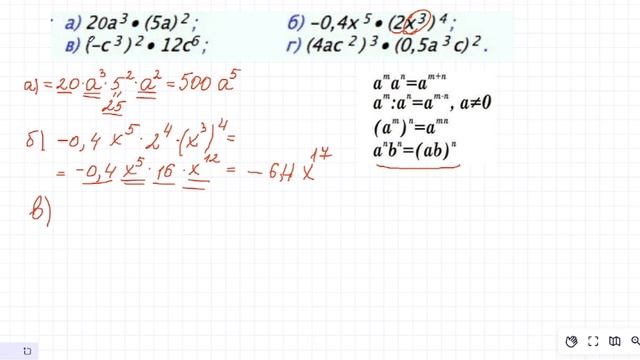 а) 20a³ • (5a)² ; б) –0,4x⁵ • (2x³)⁴ ;
в) (–c³)² • 12c⁶ ; г) (4ac²)³ • (0,5a³c)² .
а) = 20 · a³ · 5² · a² = 500 a⁵
25
б) –0,4 x⁵ · 2⁴ · (x³)⁴ =
= –0,4 x⁵ · 16 · x¹² = – 6,4 x¹⁷
в)
aᵐaⁿ=aᵐ⁺ⁿ
aᵐ:aⁿ=aᵐ⁻ⁿ, a≠0
(aᵐ)ⁿ=aᵐⁿ
aⁿbⁿ=(ab)ⁿ